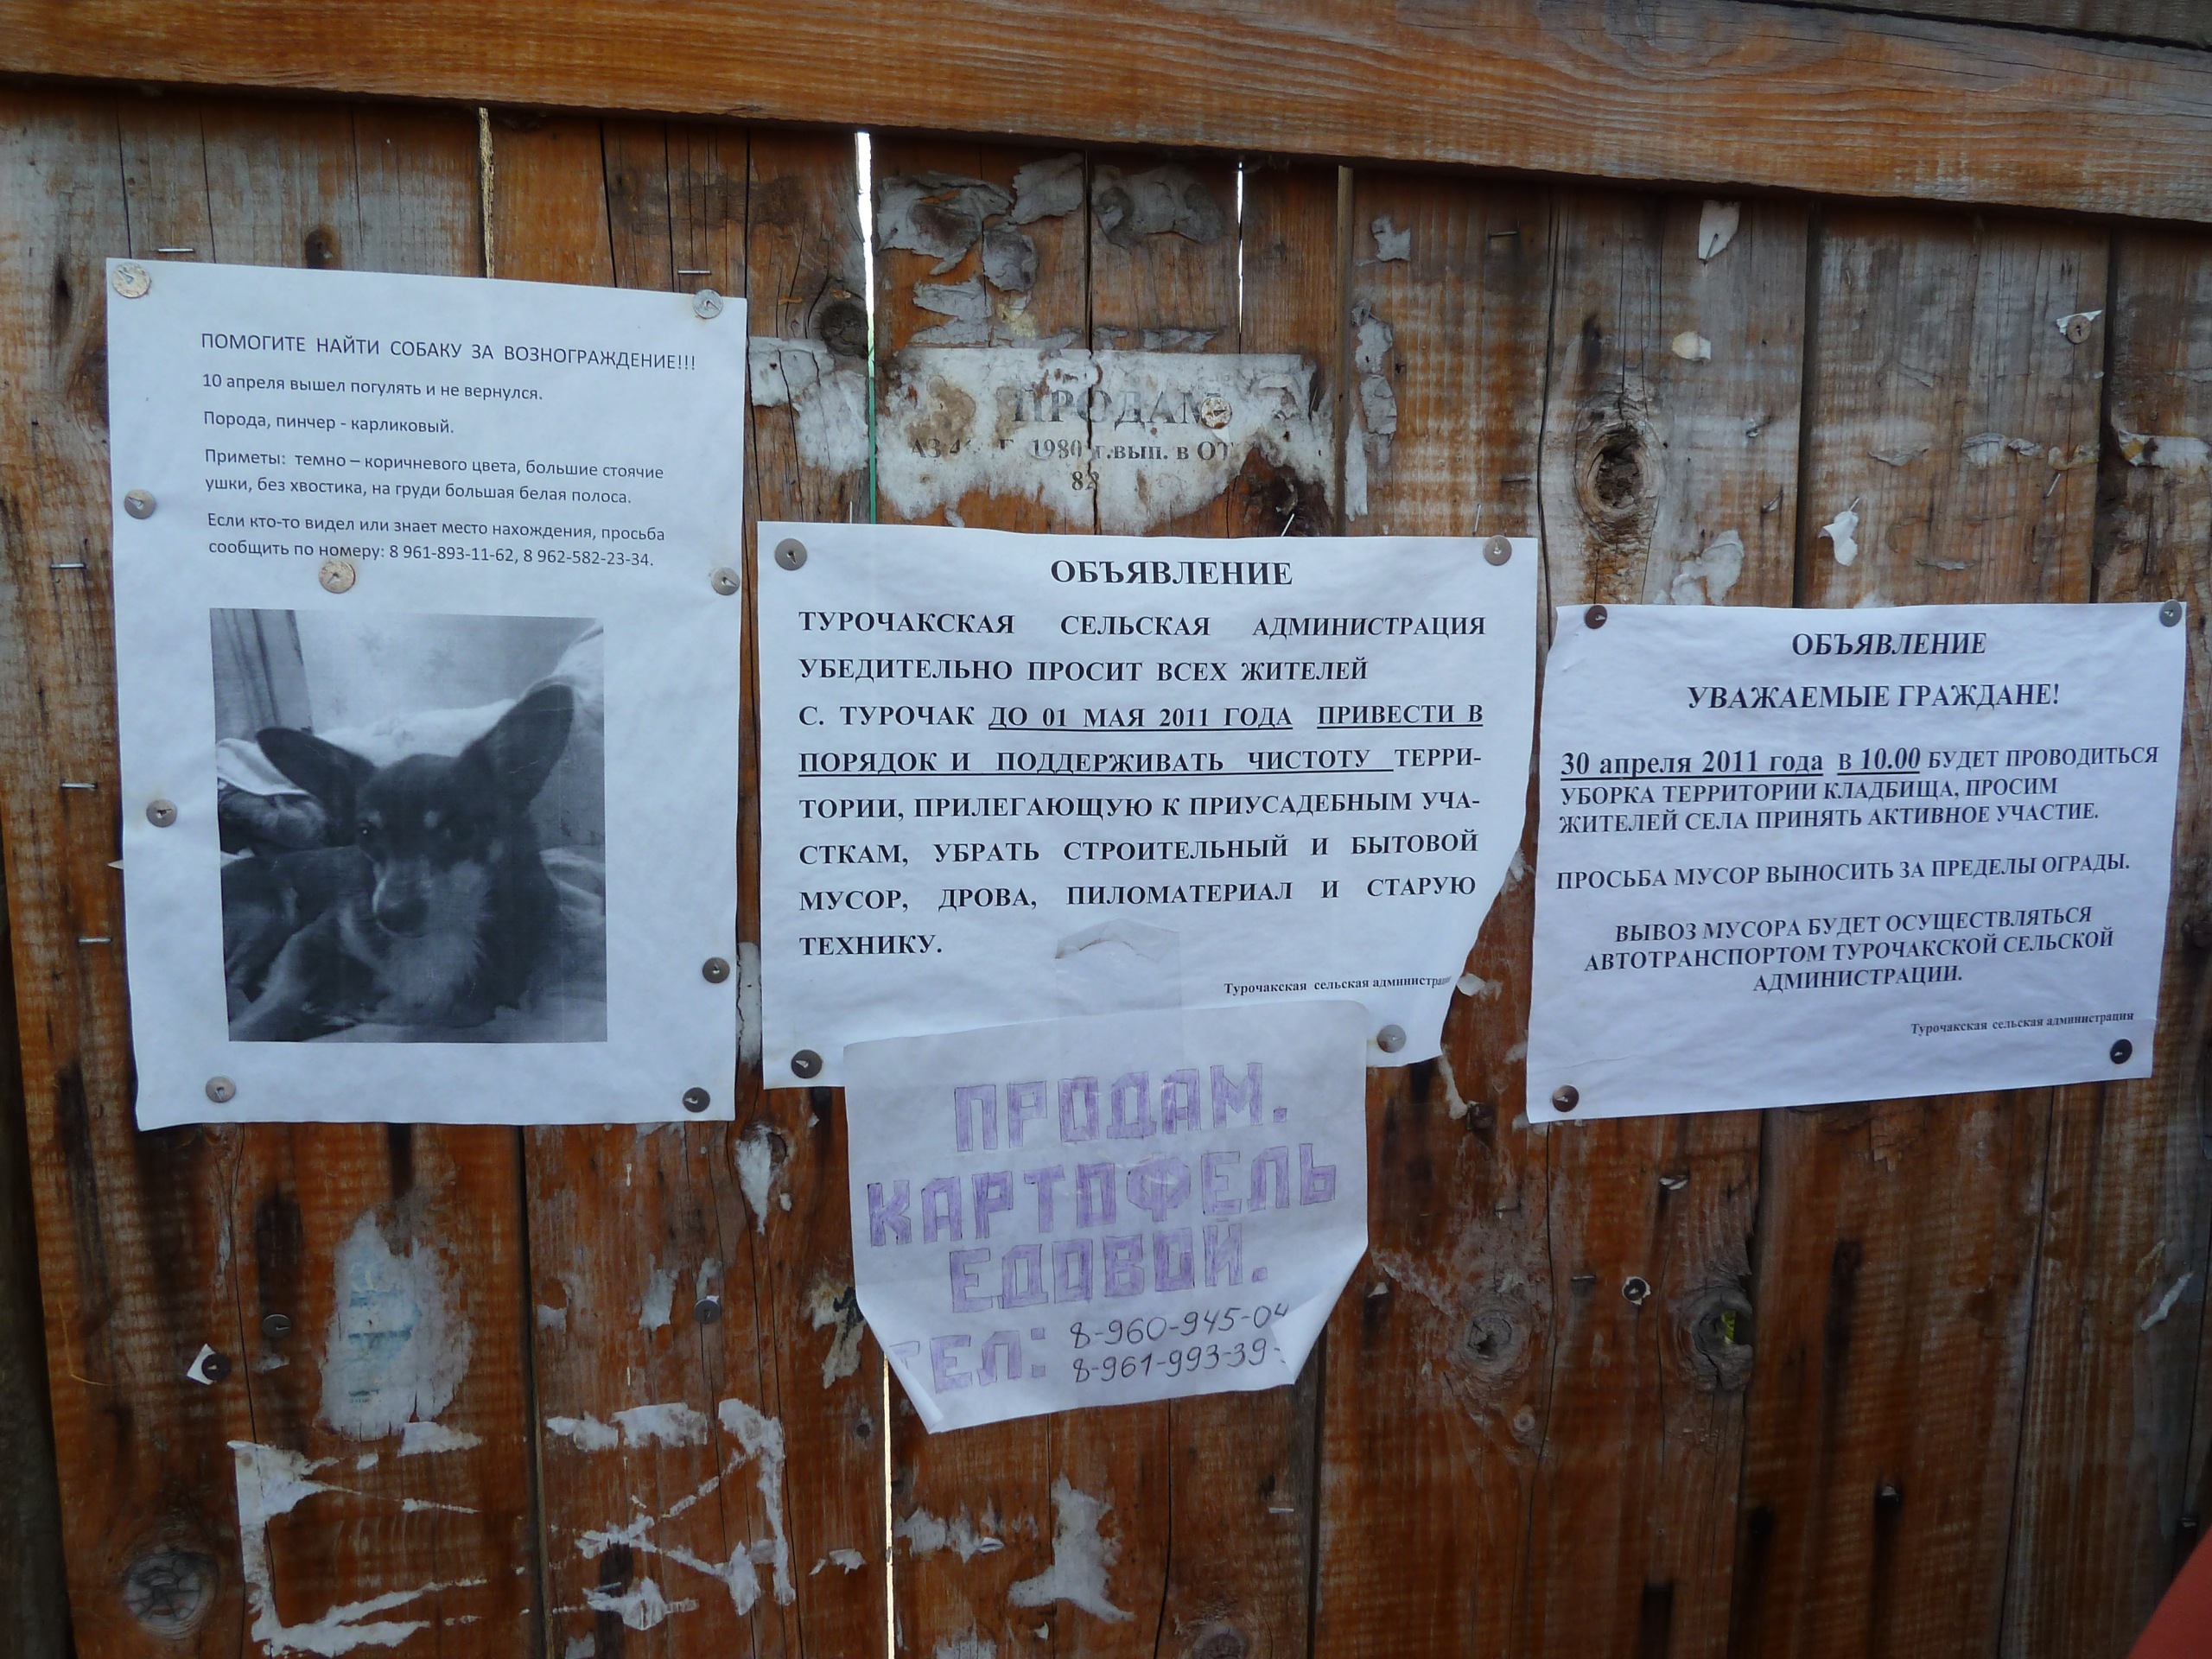 ПОМОГИТЕ НАЙТИ СОБАКУ ЗА ВОЗНОГРАЖДЕНИЕ!!!
10 апреля вышел погулять и не вернулся.
Порода, пинчер - карликовый.
Приметы: темно – коричневого цвета, большие стоячие
ушки, без хвостика, на груди большая белая полоса.
Если кто-то видел или знает место нахождения, просьба
сообщить по номеру: 8 961-893-11-62, 8 962-582-23-34.
ПРОДАМ
1980 г.вып. в ОТ
82
ОБЪЯВЛЕНИЕ
ТУРОЧАКСКАЯ СЕЛЬСКАЯ АДМИНИСТРАЦИЯ
УБЕДИТЕЛЬНО ПРОСИТ ВСЕХ ЖИТЕЛЕЙ
С. ТУРОЧАК ДО 01 МАЯ 2011 ГОДА ПРИВЕСТИ В
ПОРЯДОК И ПОДДЕРЖИВАТЬ ЧИСТОТУ ТЕРРИ-
ТОРИИ, ПРИЛЕГАЮЩУЮ К ПРИУСАДЕБНЫМ УЧА-
СТКАМ, УБРАТЬ СТРОИТЕЛЬНЫЙ И БЫТОВОЙ
МУСОР, ДРОВА, ПИЛОМАТЕРИАЛ И СТАРУЮ
ТЕХНИКУ.
Турочакская сельская администрац
ПРОДАМ.
КАРТОФЕЛЬ
ЕДОВОЙ.
ТЕЛ: 8-960-945-04
8-961-993-39-
ОБЪЯВЛЕНИЕ
УВАЖАЕМЫЕ ГРАЖДАНЕ!
30 апреля 2011 года в 10.00 БУДЕТ ПРОВОДИТЬСЯ
УБОРКА ТЕРРИТОРИИ КЛАДБИЩА, ПРОСИМ
ЖИТЕЛЕЙ СЕЛА ПРИНЯТЬ АКТИВНОЕ УЧАСТИЕ.
ПРОСЬБА МУСОР ВЫНОСИТЬ ЗА ПРЕДЕЛЫ ОГРАДЫ.
ВЫВОЗ МУСОРА БУДЕТ ОСУЩЕСТВЛЯТЬСЯ
АВТОТРАНСПОРТОМ ТУРОЧАКСКОЙ СЕЛЬСКОЙ
АДМИНИСТРАЦИИ.
Турочакская сельская администрация